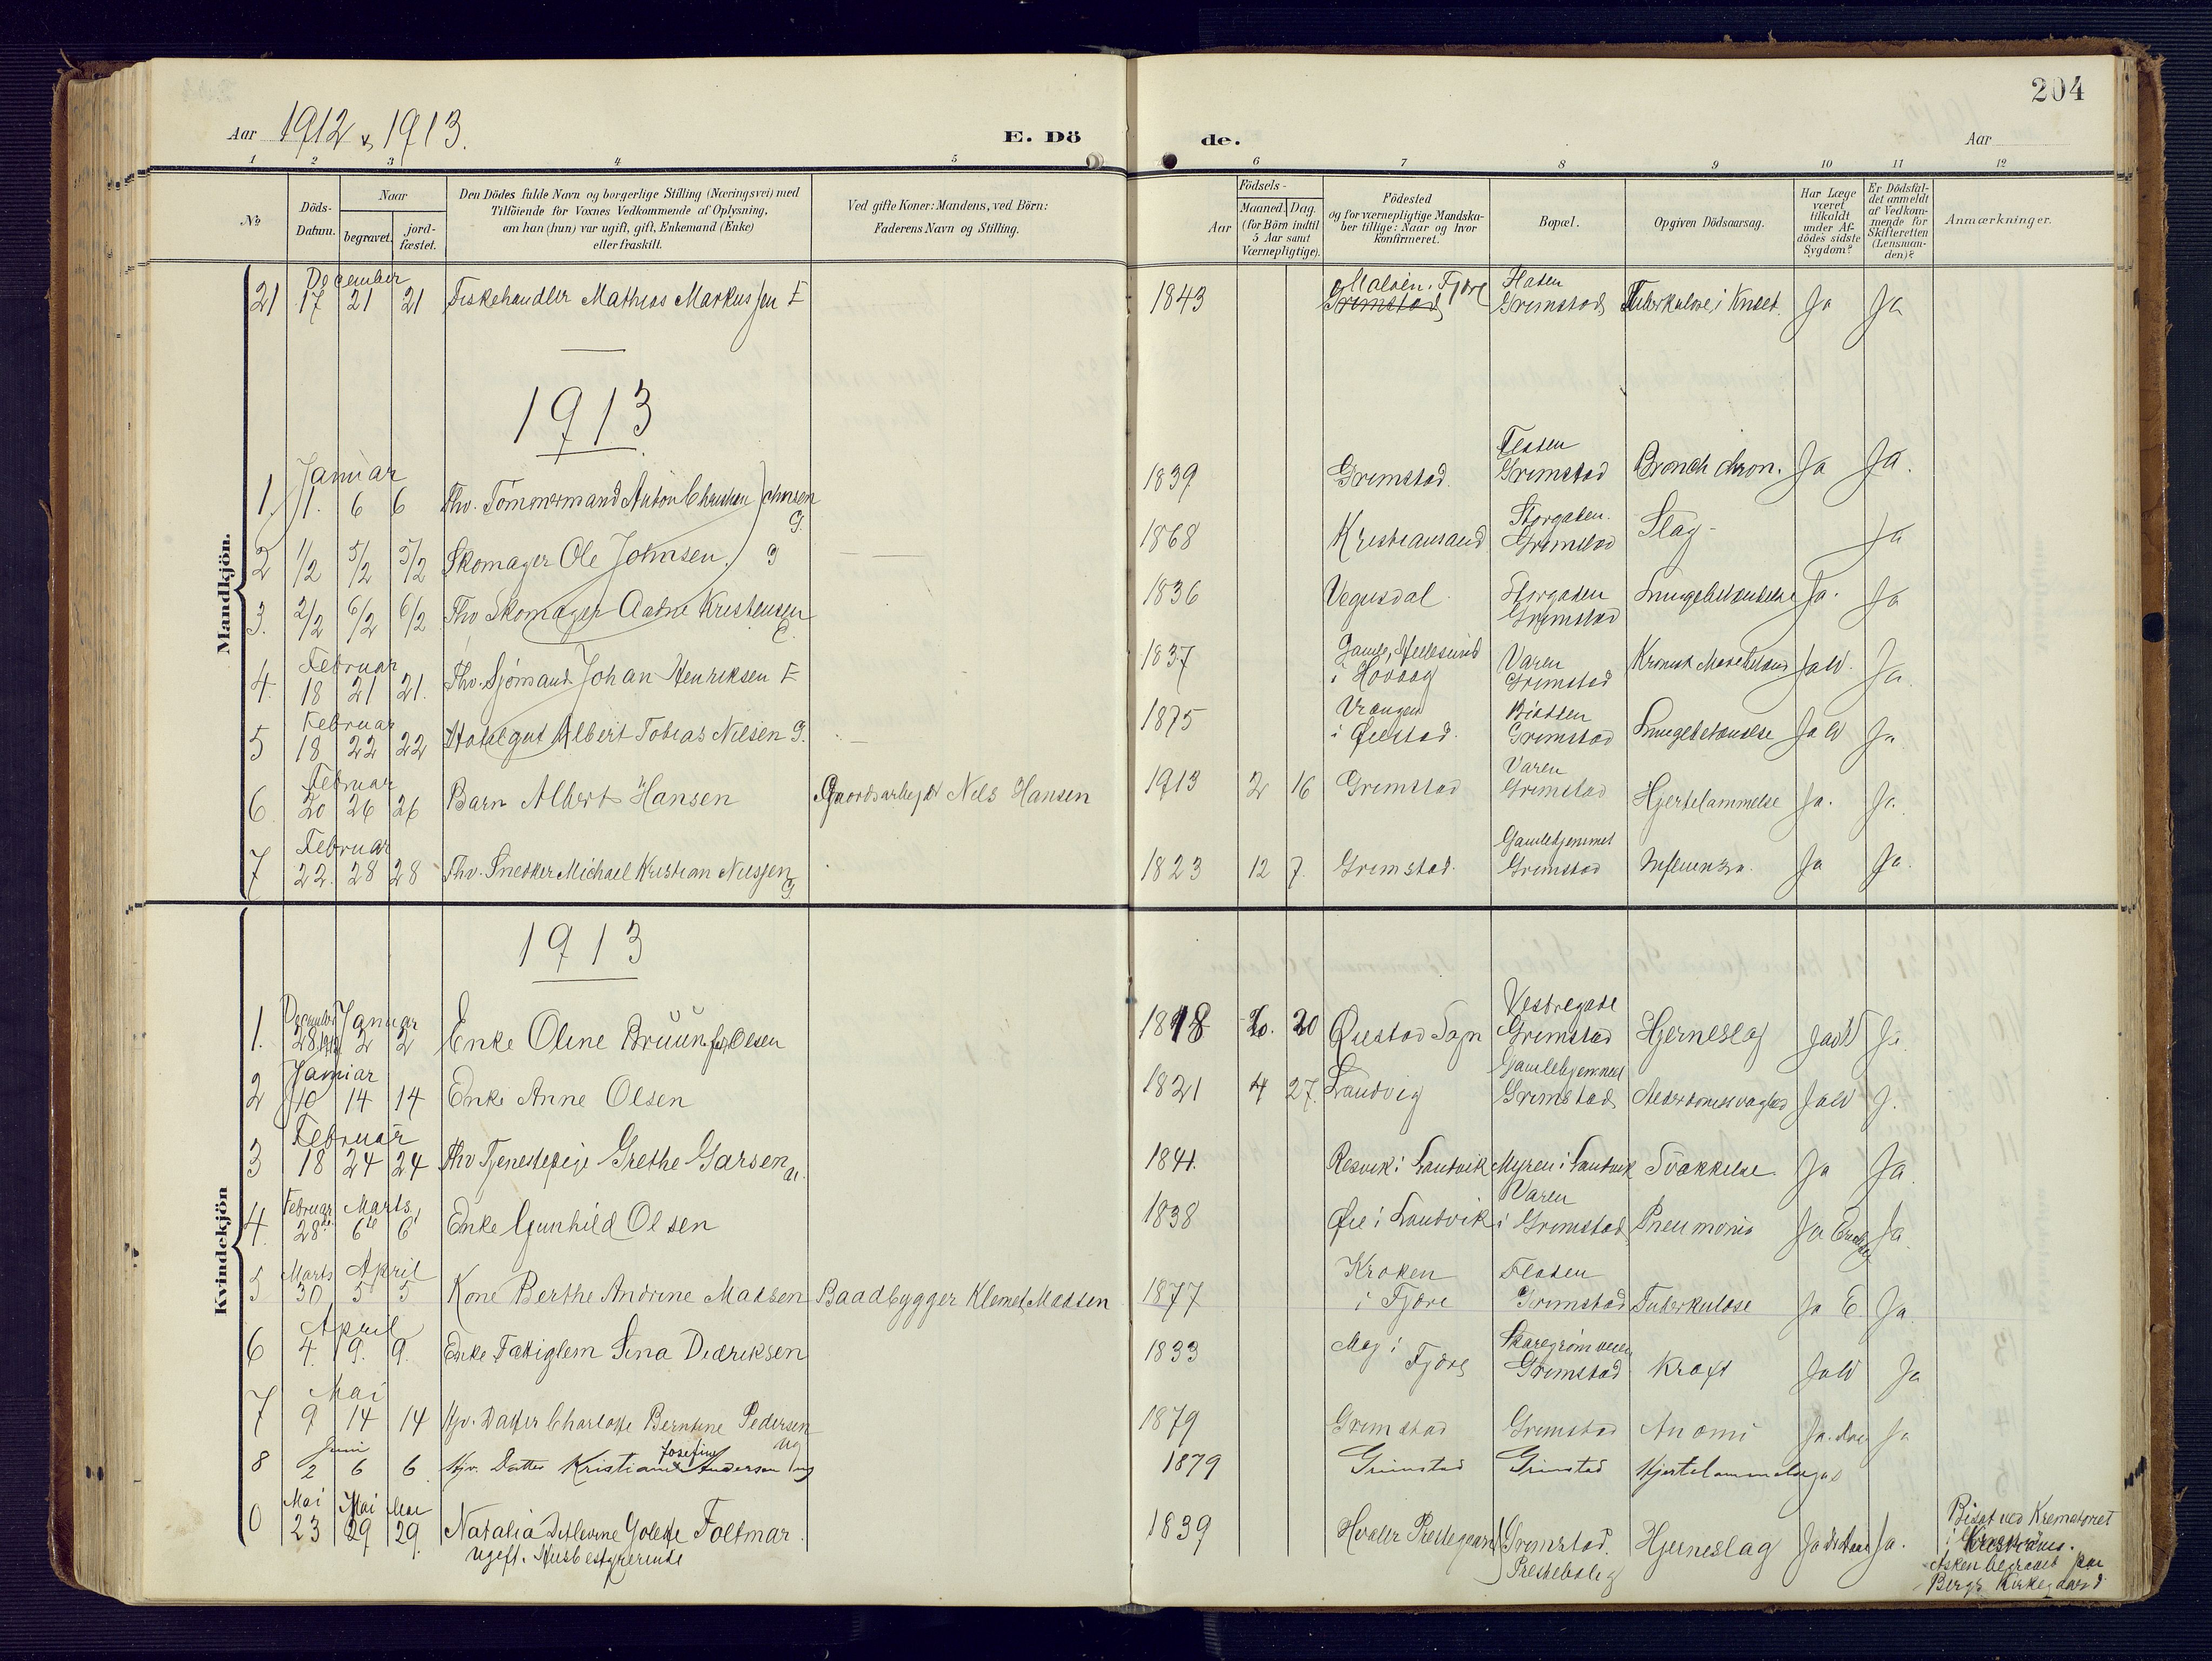 204
Aar 1912 & 1913. E. Dö de. Aar
1 2 3 4 5 6 7 8 9 10 11 12
No
Döds-Datum.
Naar
begravet.
jord-fæstet.
Den Dödes fulde Navn og borgerlige Stilling (Næringsvei) med
Tilföiende for Voxnes Vedkommende af Oplysning,
om han (hun) var ugift, gift, Enkemand (Enke)
eller fraskilt.
Ved gifte Koner: Mandens, ved Börn:
Faderens Navn og Stilling.
Födsels-
Aar
Maaned. Dag.
(for Börn indtil
5 Aar samt
Værnepligtige).
Födested
og for værnepligtige Mandska-
ber tillige: Naar og hvor
konfirmeret.
Bopæl.
Opgiven Dödsaarsag.
Har Læge
været
tilkaldt
under Af-
dödes sidste
Sygdom?
Er Dödsfal-
det anmeldt
af Vedkom-
mende for
Skifteretten
(Lensman-
den)?
Anmærkninger.
Mandkjön.
December Maløen. Fjære Floden
21 17 21 21 Fiskehandler Mathias Markussen E 1843 Grimstad Grimstad Tuberkulose i Knæet. Ja Ja
1913
Januar Floden
1. 1. 6 6 Fhv. Tømmermand Anton Christian Johnsen G. 1839 Grimstad. Grimstad Bronch chron. Ja Ja.
Storgaden.
2 1/2 5/2 5/2 Skomager Ole Johnsen. g 1868 Kristiansand Grimstad Slag - Ja
3. 2/2 6/2 6/2 Fhv Skomager Aadne Kristensen E. 1836 Vegusdal Storgaden Grimstad Lungebetændelse Ja. Ja
Februar
4. 18 21 21. Fhv. Sjømand Johan Henriksen E 1837 Gamle Hellesund i Høvaag Varen Grimstad Kronisk Ja W. Ja
Februar
5 18 22 22 Hotelgut Albert Tobias Nilsen G. 1875 Vrængen i Øiestad. Biodden Grimstad Lungebetændelse Ja W Ja
Februar Varen
6 20 26 26 Barn Albert Hansen Gaardsarbejd Nils Hansen 1913 2 16 Grimstad Grimstad Hjertelammelse Ja. Ja.
Februar Gamlehjemmet
7 22. 28 28 Fhv. Snedker Michael Kristian Nilssen G. 1823 12 7. Grimstad. Grimstad Influenza. Ja Ja.
Kvindekjön
1913
December Januar Vestregade
1. 28/1912 2 2 Enke Oline Bruun født Olsen 1818 20 Øiestad Sogn Grimstad Hjerneslag Ja W Ja
Januar Gamlehjemmet
2 10 14 14 Enke Anne Olsen 1821 4 27. Landvig Grimstad Alderdomssvaghed Ja W J.
Februar
3 18 24 24 Fhv Tjenestepige Grethe Garsen u. 1841. Resvik i Landvik Myren i Landvik Svækkelse Ja Ja
Februar Marts Varen
4. 28de 6te 6 Enke Gunhild Olsen 1838 Øie i Landvik i Grimstad Pneumonia Ja Ja
Marts April Kroken Floden
5 30 5 5 Kone Berthe Andrine Madsen Baadbygger Klemet Madsen 1877 i Fjære Grimstad Tuberkulose Ja E. Ja.
April
6 4. 9. 9. Enke Fattiglem Sina Didriksen 1833 Moy i Fjære Skaregrømveien Grimstad Kræft Ja W Ja
Mai
7 9 14 14 Hjv. Datter Charlotte Berntine Pedersen ug 1879 Grimstad Grimstad Anæmi Ja. Ja
Juni Josefine
8 2 6 6 Hjv. Datter Kristiane Andersen ug 1879 Grimstad Grimstad Hjertelammelse
Mai Mai Mai
23 29 29. Natalia Ditlevine Golette Foltmar. 1839 Hvaler Prestegaard Grimstad. Hjerneslag Ja Ja.
ugift. Husbestyrerinde Prestebolig
Bisat ved Krematoriet
i Kristiania.
Asken begravet paa
Berge Kirkegaard